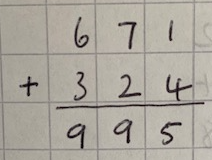 6 7 1
+ 3 2 4
9 9 5